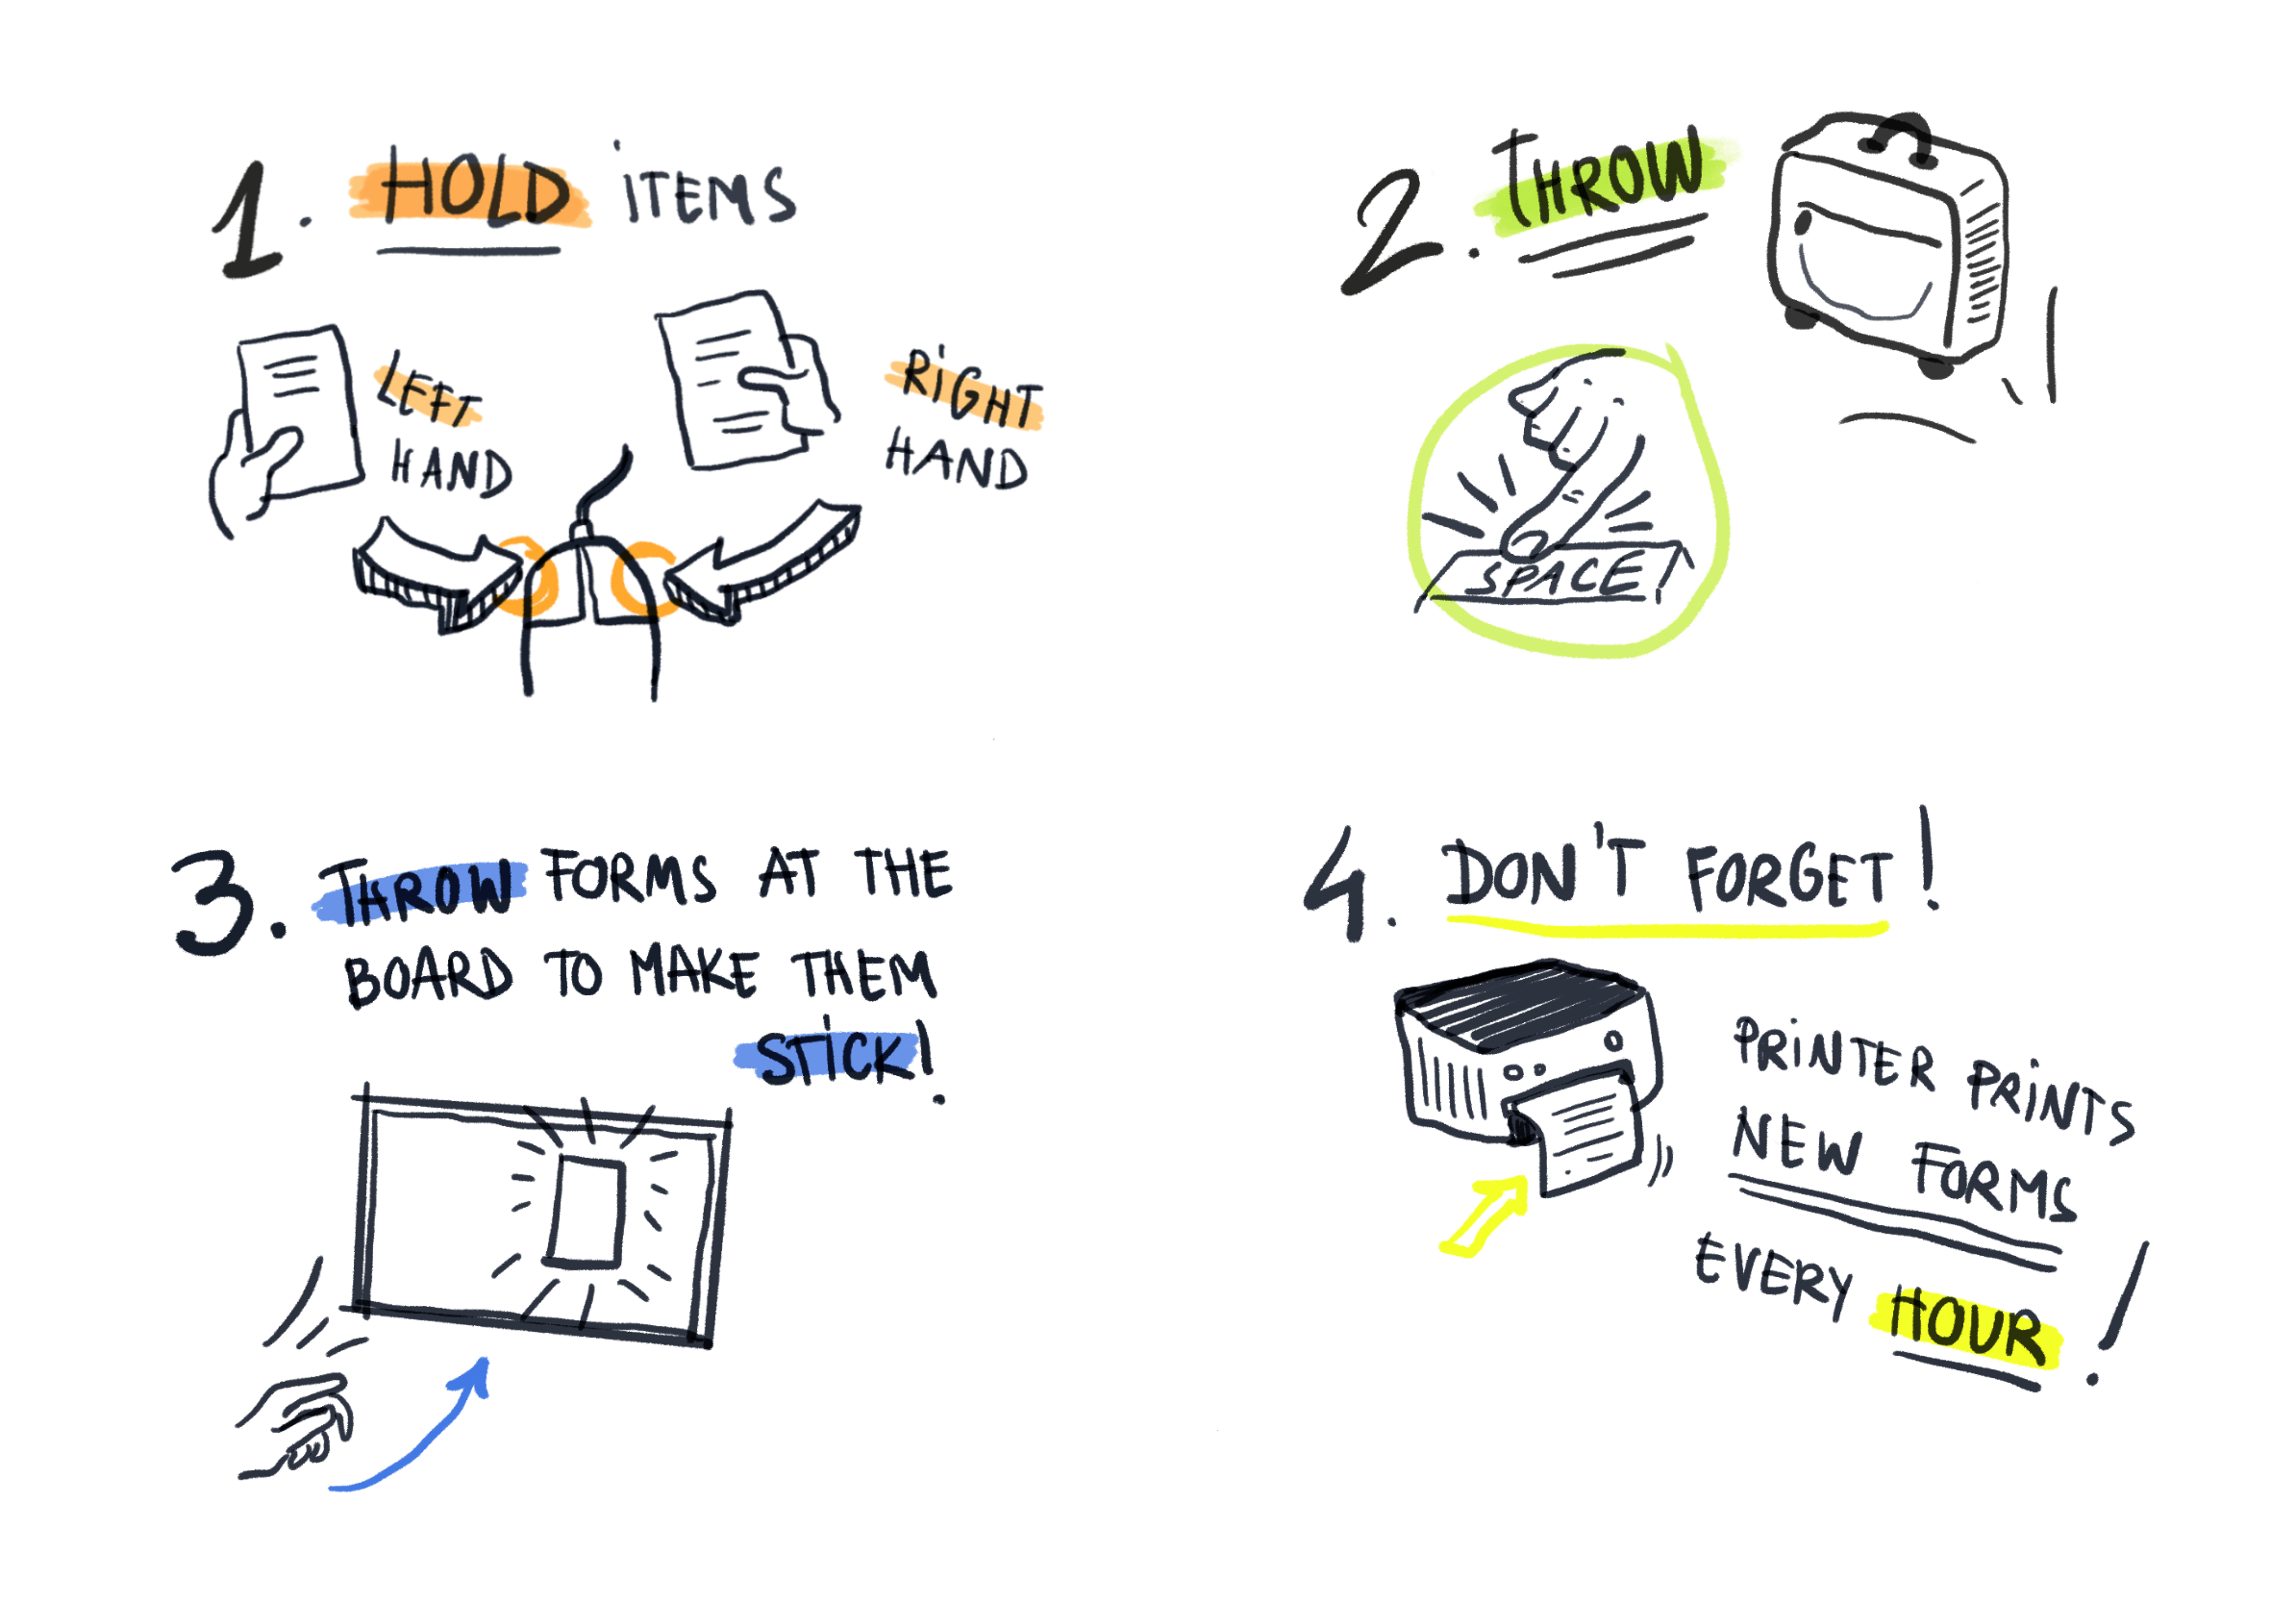 1. HOLD iTEMS
LEFT
HAND
RiGHT
HAND
2. THROW
SPACE
3. THROW FORMS AT THE
BOARD TO MAKE THEM
STiCK!
4. DON'T FORGET!
PRiNTER PRiNTS
NEW FORMS
EVERY HOUR!